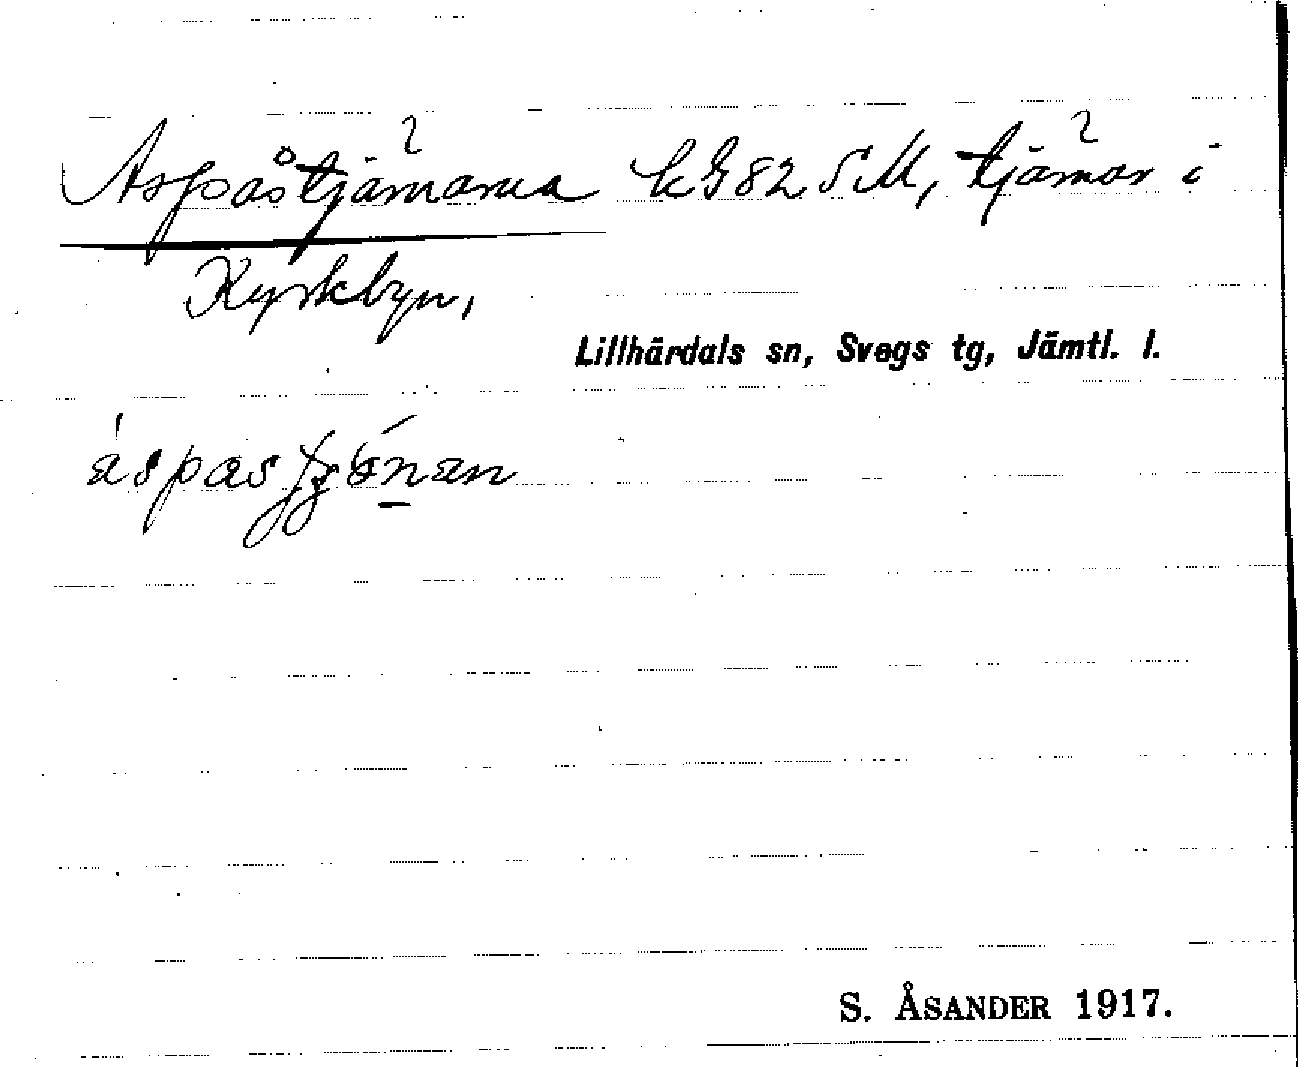 Aspåstjärnarna kG82SM, tjärnar i
Kyrkbyn,
Lillhärdals sn, Svegs tg, Jämtl. l.
S. ÅSANDER 1917.